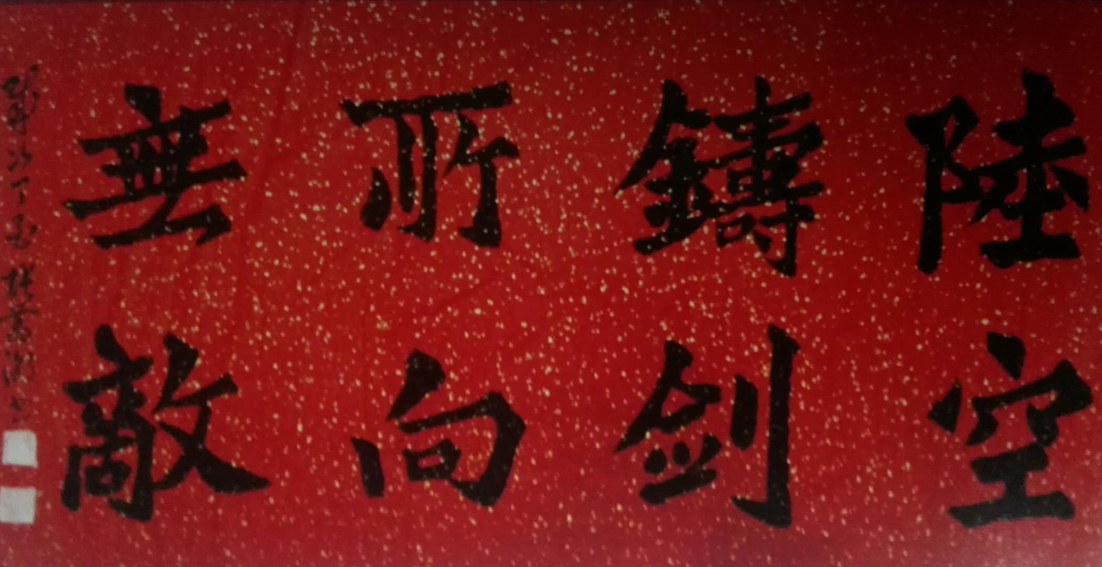 陸空
鑄剑
所向
無敵